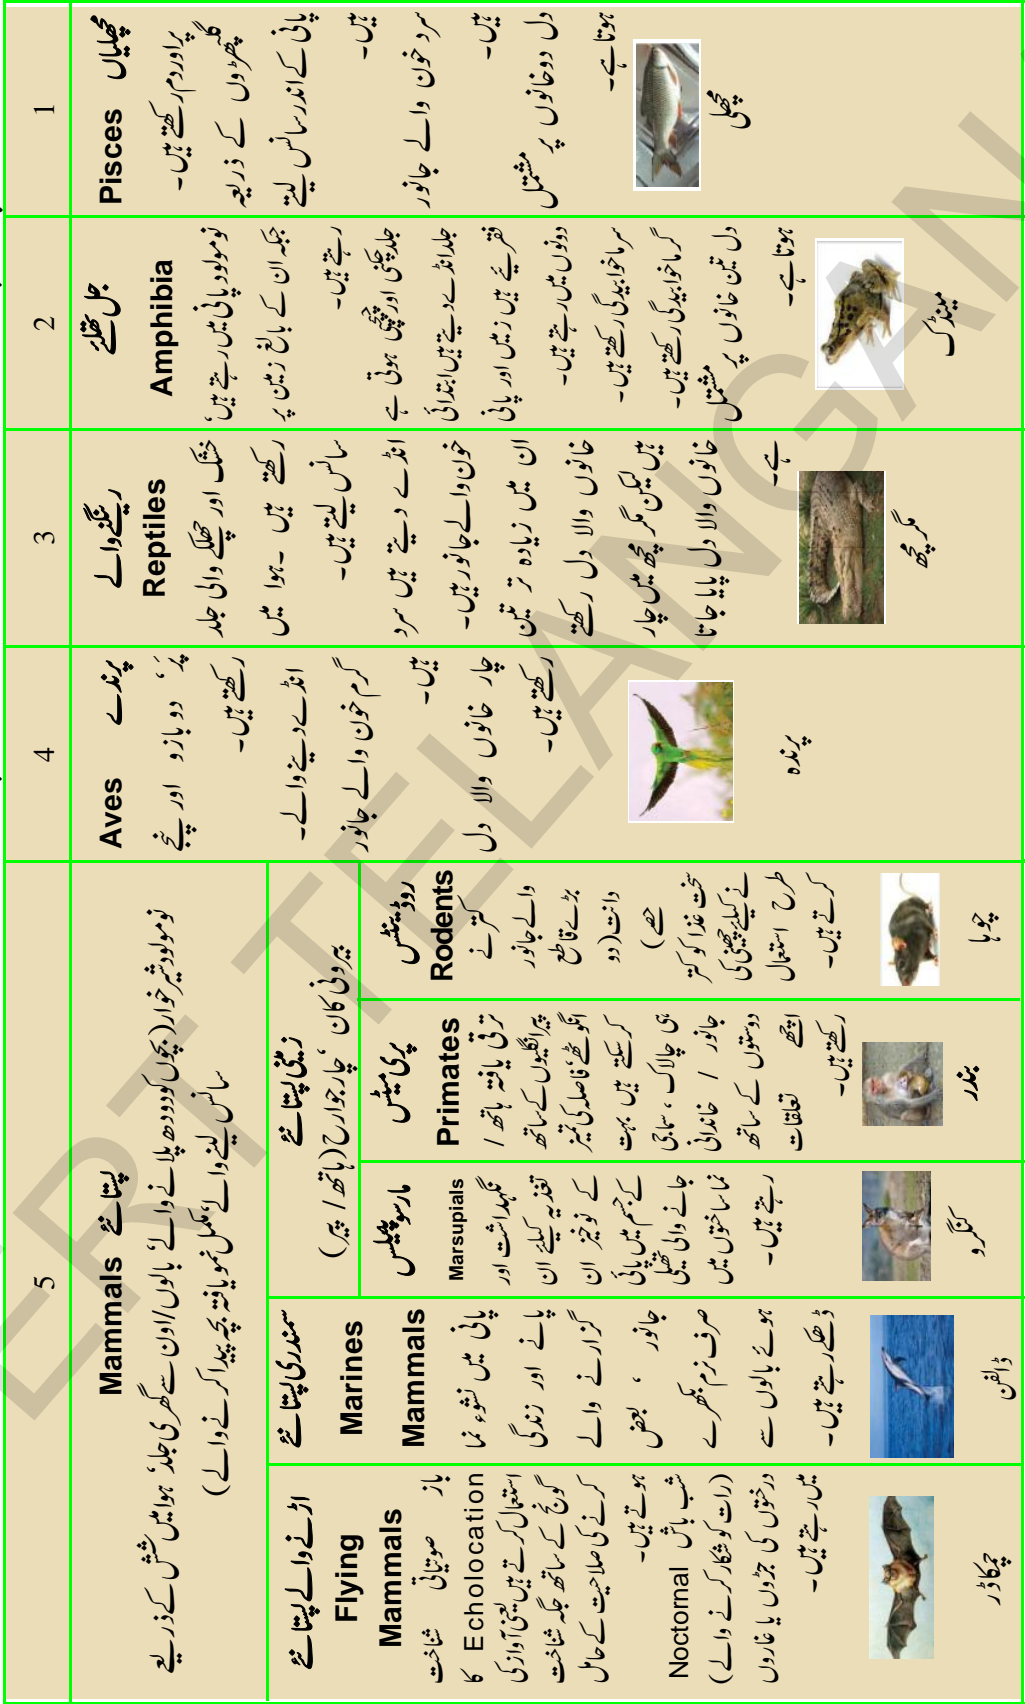 1
Pisces مچھلیاں
پر اور دم رکھتے ہیں۔
گلپھڑوں کے ذریعہ
پانی کے اندر سانس لیتے
ہیں۔
سرد خون والے جانور
ہیں۔
دل دوخانوں پر مشتمل
ہوتا ہے۔
مچھلی
2
جل تھلئے
Amphibia
نومولود پانی میں رہتے ہیں،
جبکہ ان کے بالغ زمین پر
رہتے ہیں۔
جلد چکنی اور چپچپی ہوتی ہے
جلد انڈے دیتے ہیں ابتدائی
فقریئے ہیں زمین اور پانی
دونوں میں رہتے ہیں۔
سرما خوابیدگی رکھتے ہیں۔
گرما خوابیدگی رکھتے ہیں۔
دل تین خانوں پر مشتمل
ہوتا ہے۔
مینڈک
3
رینگنے والے
Reptiles
خشک اور چھلکے والی جلد
رکھتے ہیں ۔ ہوا میں
سانس لیتے ہیں۔
انڈے دیتے ہیں سرد
خون والے جانور ہیں۔
ان میں زیادہ تر تین
خانوں والا دل رکھتے
ہیں لیکن مگر مچھ میں چار
خانوں والا دل پایا جاتا
ہے۔
مگر مچھ
4
Aves پرندے
پَر، دو بازو اور پنجے
رکھتے ہیں۔
انڈے دینے والے۔
گرم خون والے جانور
ہیں۔
چار خانوں والا دل
رکھتے ہیں۔
پرندہ
5
Mammals پستانئے
نومولود شیر خوار (بچوں کو دودھ پلانے والے، بالوں/اون سے گھری جلد، ہوا میں شش کے ذریعے
سانس لینے والے، مکمل نمو یافتہ بچہ پیدا کرنے والے)
زمینی پستانئے
بیرونی کان، چار جوارح (ہاتھ / پیر)
روڈینٹس
Rodents
کترنے
والے جانور
بڑے قاطع
دانت (دو
حصے)
سخت غذا کو کتر
نے کیلئے چھینی کی
طرح استعمال
کرتے ہیں۔
چوہا
پری میٹس
Primates
ترقی یافتہ ہاتھ /
پیر انگلیوں کے ساتھ
انگوٹھے، فاصلہ کی تمیز
کر سکتے ہیں، بہت
ہی چالاک ، سماجی
جانور / خاندانی
دوستوں کے ساتھ
اچھے تعلقات
رکھتے ہیں۔
بندر
مارسوپیلس
Marsupials
نگہداشت اور
تغذیہ کیلئے ان
کے نوخیز ان
کے جسم میں پائی
جانے والی تھیلی
نما ساختوں میں
رہتے ہیں۔
کنگرو
سمندری پستانئے
Marines
Mammals
پانی میں نشوء نما
پانے اور زندگی
گزارنے والے
جانور ، بعض
صرف نرم بکھرے
ہوئے بالوں سے
ڈھکے رہتے ہیں۔
ڈالفن
اڑنے والے پستانئے
Flying
Mammals
باز صوتیاتی شناخت
Echolocation کا
استعمال کرتے ہیں یعنی آواز کی
گونج کے ساتھ جگہ شناخت
کرنے کی صلاحیت کے حامل
ہوتے ہیں۔
شب باش Noctornal
(رات کو شکار کرنے والے)
درختوں کی جڑوں یا غاروں
میں رہتے ہیں۔
چمگاڈر